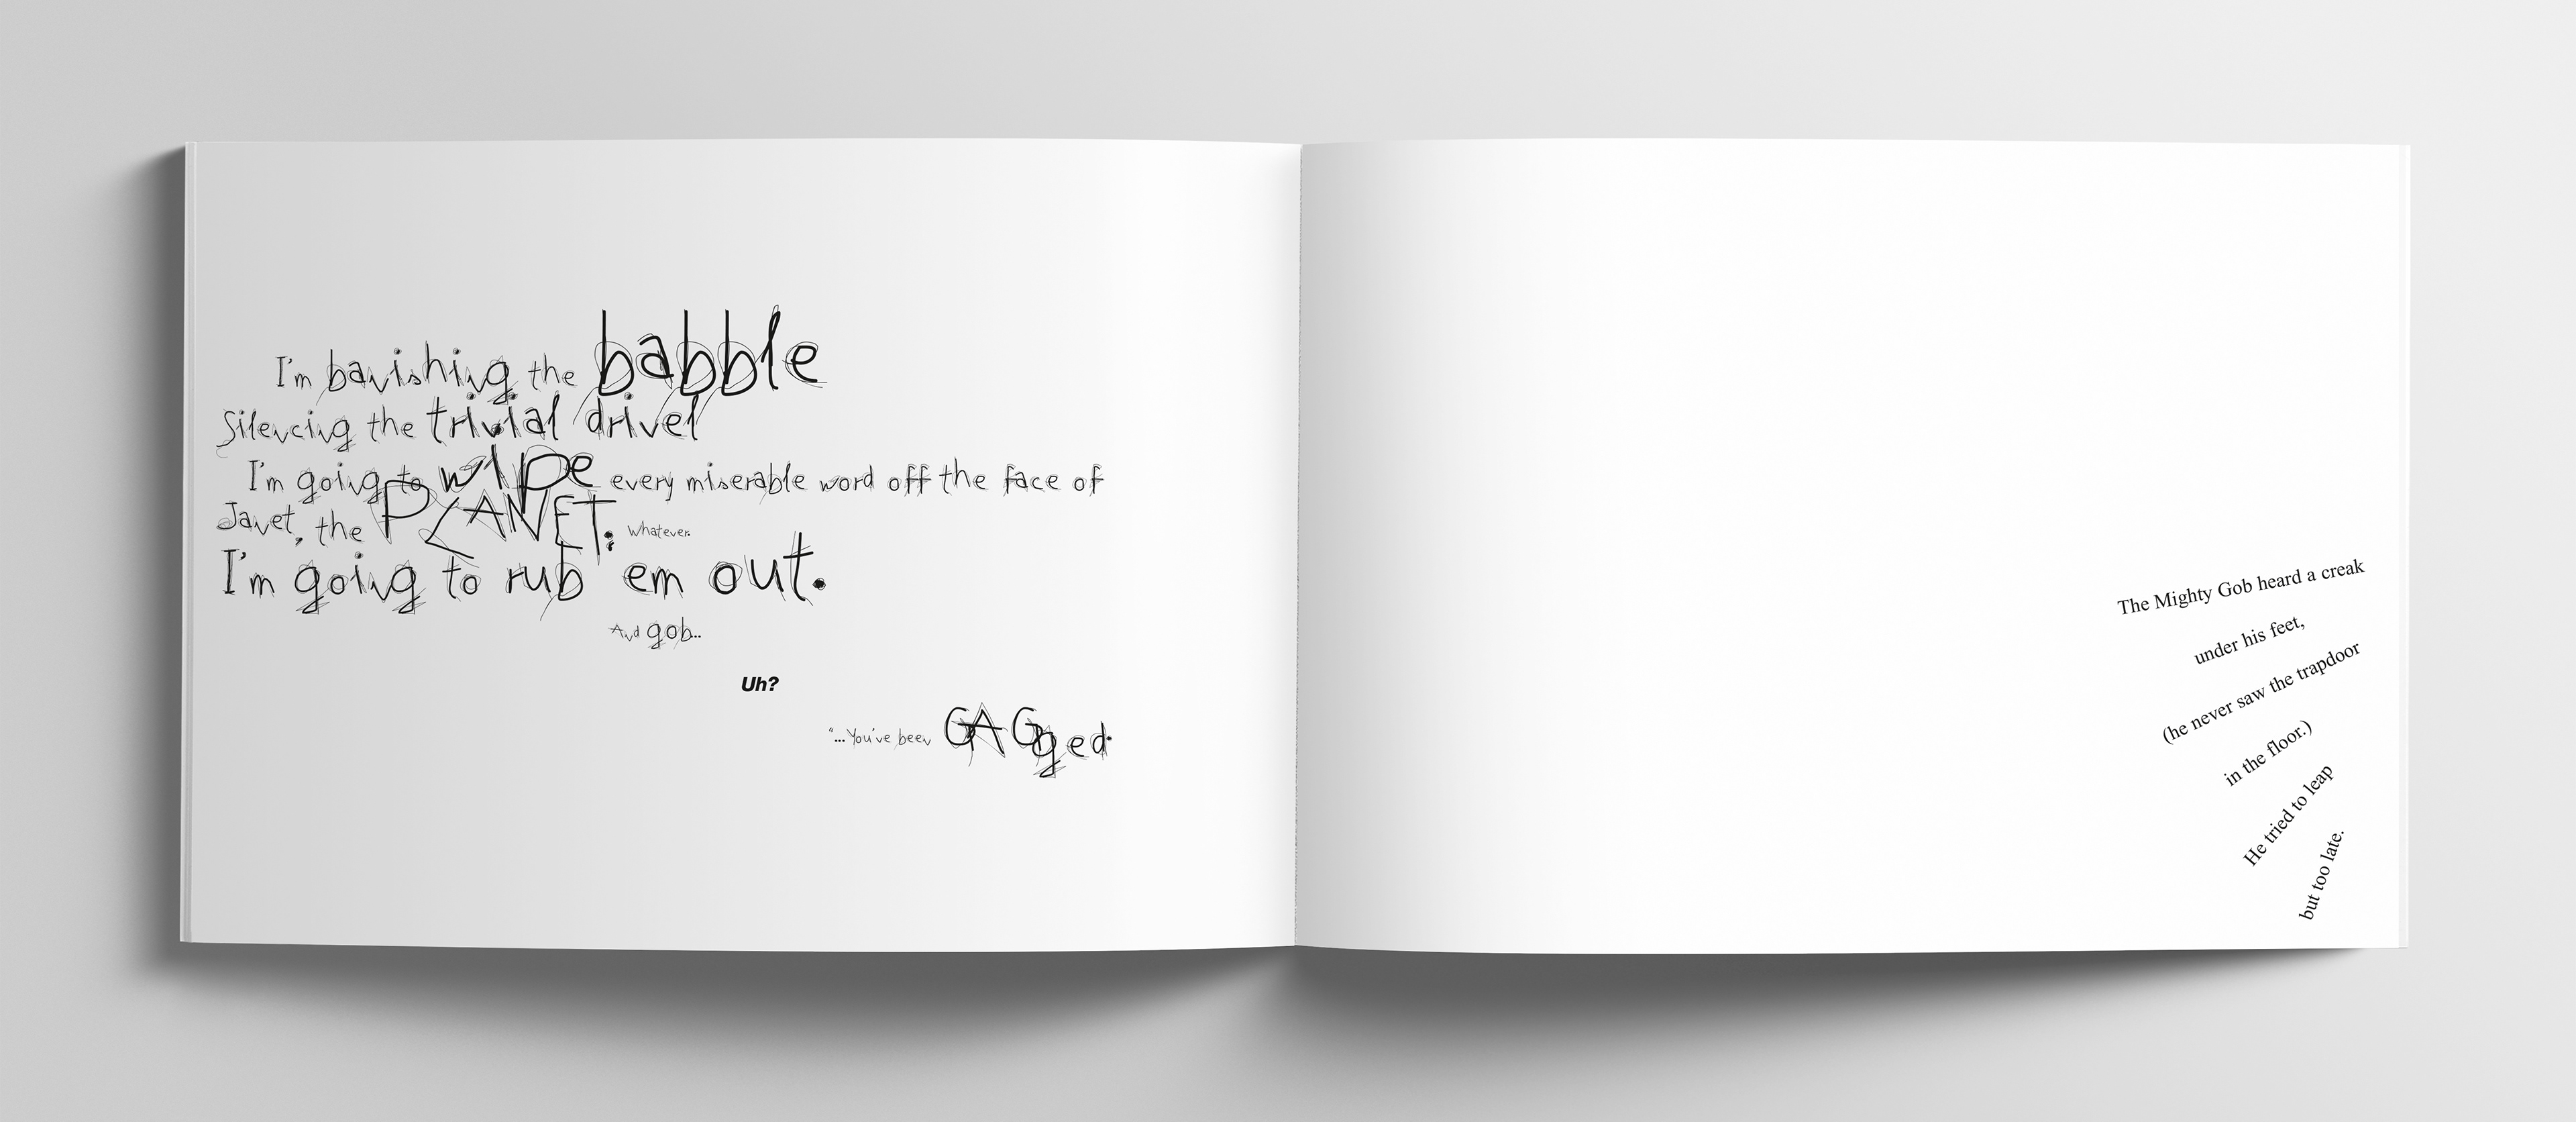 I'm banishing the babble
Silencing the trivial drivel
I'm going to wIpe every miserable word off the face of
Janet, the PLANET. Whatever.
I'm going to rub 'em out.
And gob...
Uh?
"...You've been GAGged.
The Mighty Gob heard a creak
under his feet,
(he never saw the trapdoor
in the floor.)
He tried to leap
but too late.